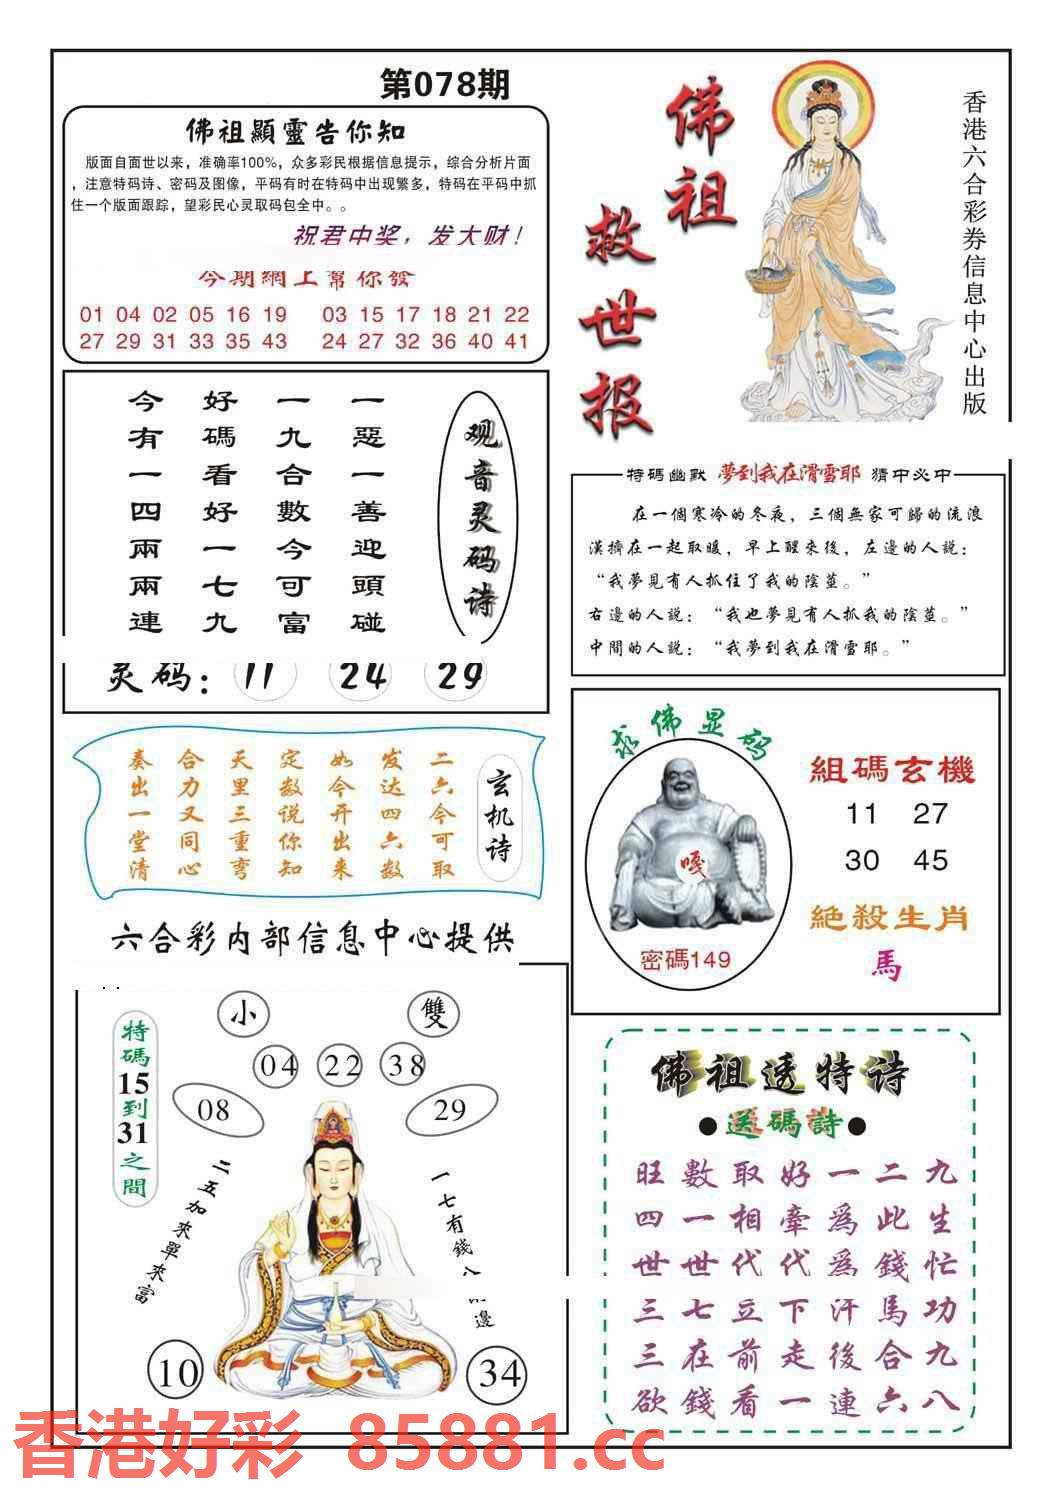 第078期
佛祖顯靈告你知
版面自面世以来，准确率100%，众多彩民根据信息提示，综合分析片面
，注意特码诗、密码及图像，平码有时在特码中出现繁多，特码在平码中抓
住一个版面跟踪，望彩民心灵取码包全中。。
祝君中奖，发大财！
今期網上幫你發
01 04 02 05 16 19 03 15 17 18 21 22
27 29 31 33 35 43 24 27 32 36 40 41
佛祖
救世报
香港六合彩券信息中心出版
观音灵码诗
今好一一
有碼九惡
一看合一
四好數善
兩一今迎
兩七可頭
連九富碰
灵码：11 24 29
特碼幽默 夢到我在滑雪耶 猜中必中
在一個寒冷的冬夜，三個無家可歸的流浪
漢擠在一起取暖，早上醒來後，左邊的人説：
“我夢見有人抓住了我的陰莖。”
右邊的人説：“我也夢見有人抓我的陰莖。”
中間的人説：“我夢到我在滑雪耶。”
玄机诗
奏合天定如发二
出力里数今达六
一又三说开四今
堂同重你出六可
清心弯知来数取
六合彩内部信息中心提供
求佛显码
嘎
密碼149
組碼玄機
11 27
30 45
絕殺生肖
馬
特碼15到31之間
小 雙
04 22 38
08 29
二五加來單來富
一七有錢八
邊
10 34
佛祖透特诗
●送碼詩●
旺數取好一二九
四一相牽爲此生
世世代代爲錢忙
三七立下汗馬功
三在前走後合九
欲錢看一連六八
香港好彩 85881.cc